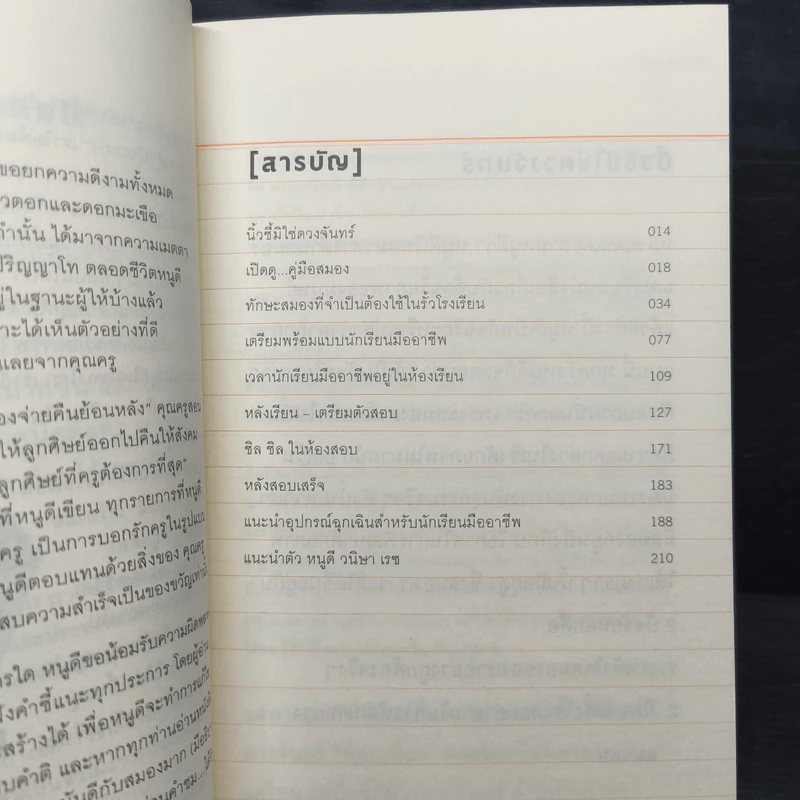 ขอยกความดีงามทั้งหมด
วตอกและดอกมะเขือ
ท่านั้น ได้มาจากความเมตตา
ปริญญาโท ตลอดชีวิตหนูดี
ยู่ในฐานะผู้ให้บ้างแล้ว
าะได้เห็นตัวอย่างที่ดี
นเลยจากคุณครู
องจ่ายคืนย้อนหลัง" คุณครูสอน
ให้ลูกศิษย์ออกไปคืนให้สังคม
ลูกศิษย์ที่ครูต้องการที่สุด"
ที่หนูดีเขียน ทุกรายการที่หนูดี
ครู เป็นการบอกรักครูในรูปแบบ
หนูดีตอบแทนด้วยสิ่งของ คุณครู
สบความสำเร็จเป็นของขวัญเท่านั้น
ารใด หนูดีขอน้อมรับความผิดพลาด
ังคำชี้แนะทุกประการ โดยผู้อ่าน
สร้างได้ เพื่อหนูดีจะทำการแก้ไข
บคำติ และหากทุกท่านอ่านหนังสือ
ันดีกับสมองมาก
[สารบัญ]
นิ้วชี้มิใช่ดวงจันทร์ 014
เปิดดู...คู่มือสมอง 018
ทักษะสมองที่จำเป็นต้องใช้ในรั้วโรงเรียน 034
เตรียมพร้อมแบบนักเรียนมืออาชีพ 077
เวลานักเรียนมืออาชีพอยู่ในห้องเรียน 109
หลังเรียน – เตรียมตัวสอบ 127
ชิล ชิล ในห้องสอบ 171
หลังสอบเสร็จ 183
แนะนำอุปกรณ์ฉุกเฉินสำหรับนักเรียนมืออาชีพ 188
แนะนำตัว หนูดี วนิษา เรซ 210